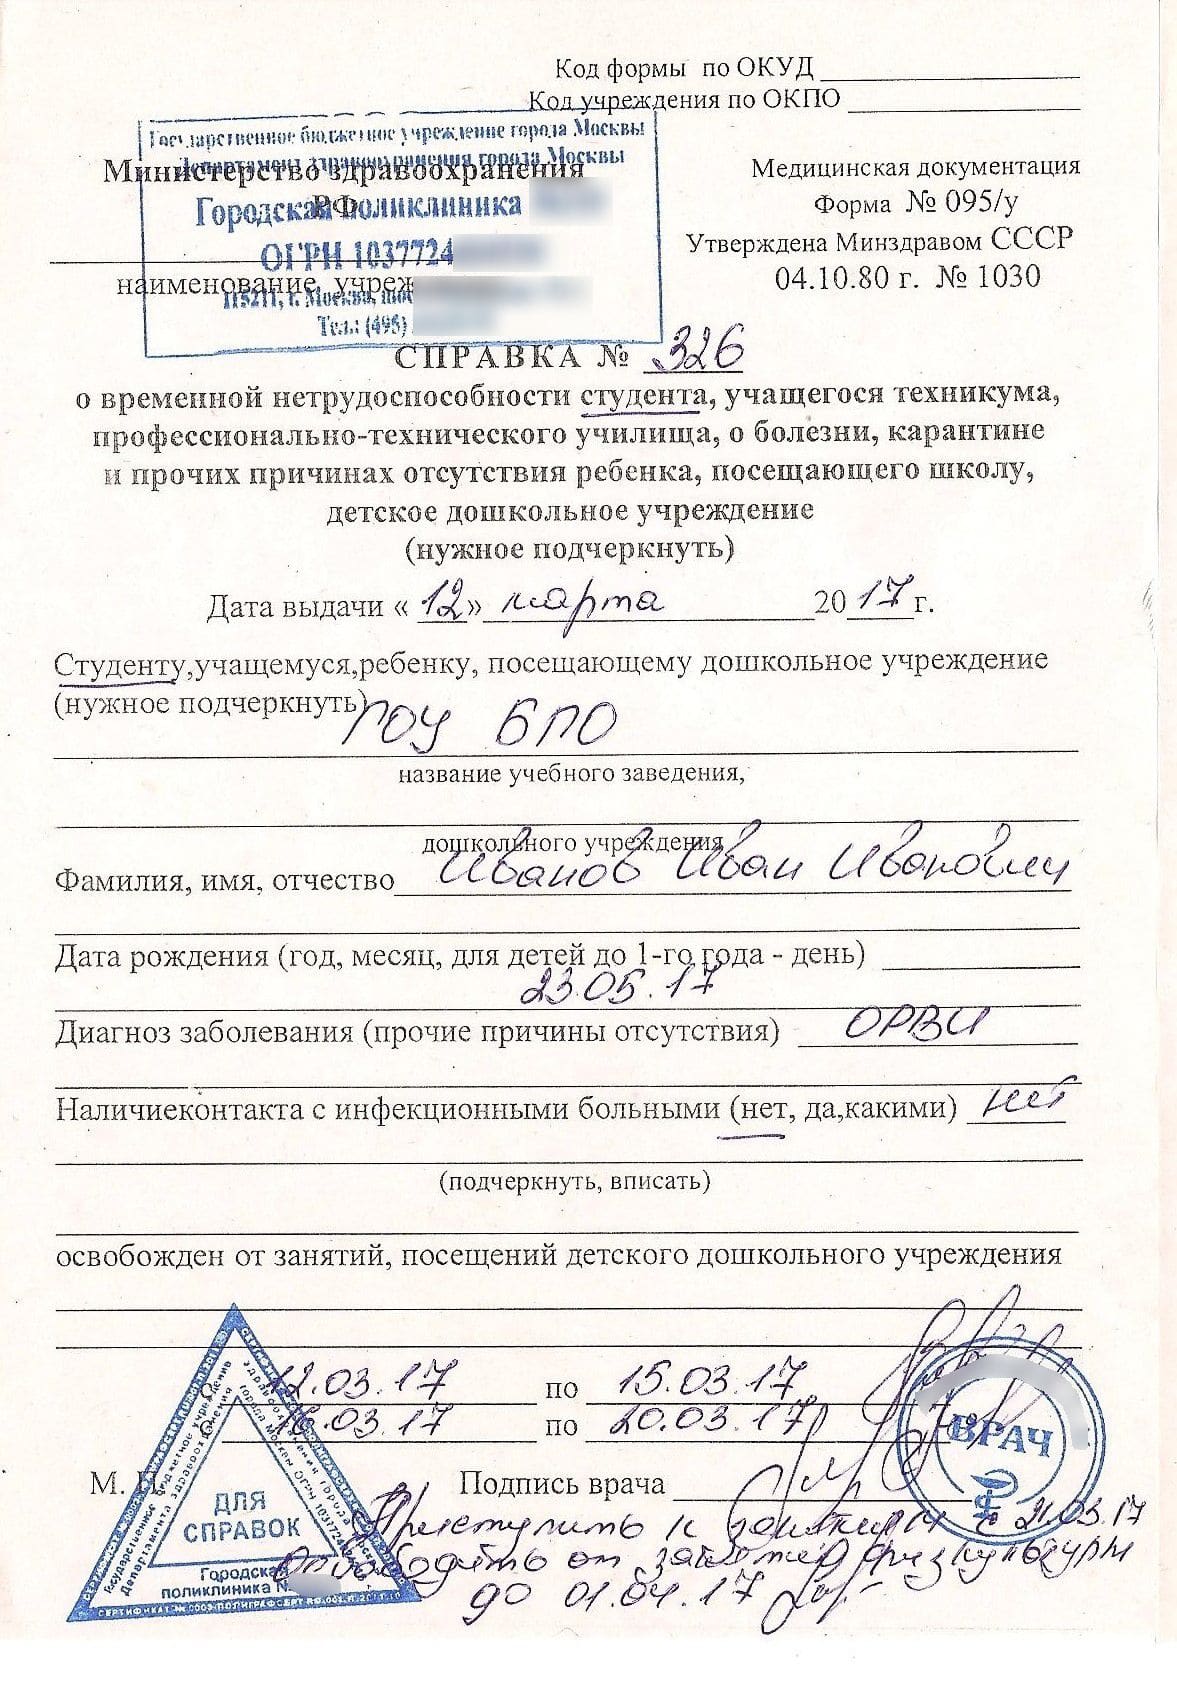 Код формы по ОКУД
Код учреждения по ОКПО
Государственное бюджетное учреждение города Москвы
Департамент здравоохранения города Москвы
Министерство здравоохранения
РФ
Городская поликлиника
ОГРН 1037724
наименование учреж
115211, г. Москва,
Тел.: (495)
Медицинская документация
Форма № 095/у
Утверждена Минздравом СССР
04.10.80 г. № 1030
СПРАВКА № 326
о временной нетрудоспособности студента, учащегося техникума,
профессионально-технического училища, о болезни, карантине
и прочих причинах отсутствия ребенка, посещающего школу,
детское дошкольное учреждение
(нужное подчеркнуть)
Дата выдачи « 12 » марта 2017 г.
Студенту,учащемуся,ребенку, посещающему дошкольное учреждение
(нужное подчеркнуть)
ГОУ БПО
название учебного заведения,
дошкольного учреждения
Фамилия, имя, отчество Иванов Иван Иванович
Дата рождения (год, месяц, для детей до 1-го года - день)
23.05.17
Диагноз заболевания (прочие причины отсутствия) ОРВИ
Наличиеконтакта с инфекционными больными (нет, да,какими) нет
(подчеркнуть, вписать)
освобожден от занятий, посещений детского дошкольного учреждения
С 12.03.17 по 15.03.17
16.03.17 по 20.03.17
ВРАЧ
М. П. Подпись врача
ДЛЯ
СПРАВОК
Городская
поликлиника №
Государственное бюджетное учреждение
Департамента здравоохранения
здравоохранения города
города Москвы ОГРН 1037724
Приступить к занятиям с 21.03.17
Освободить от занятий физкультуры
до 01.04.17